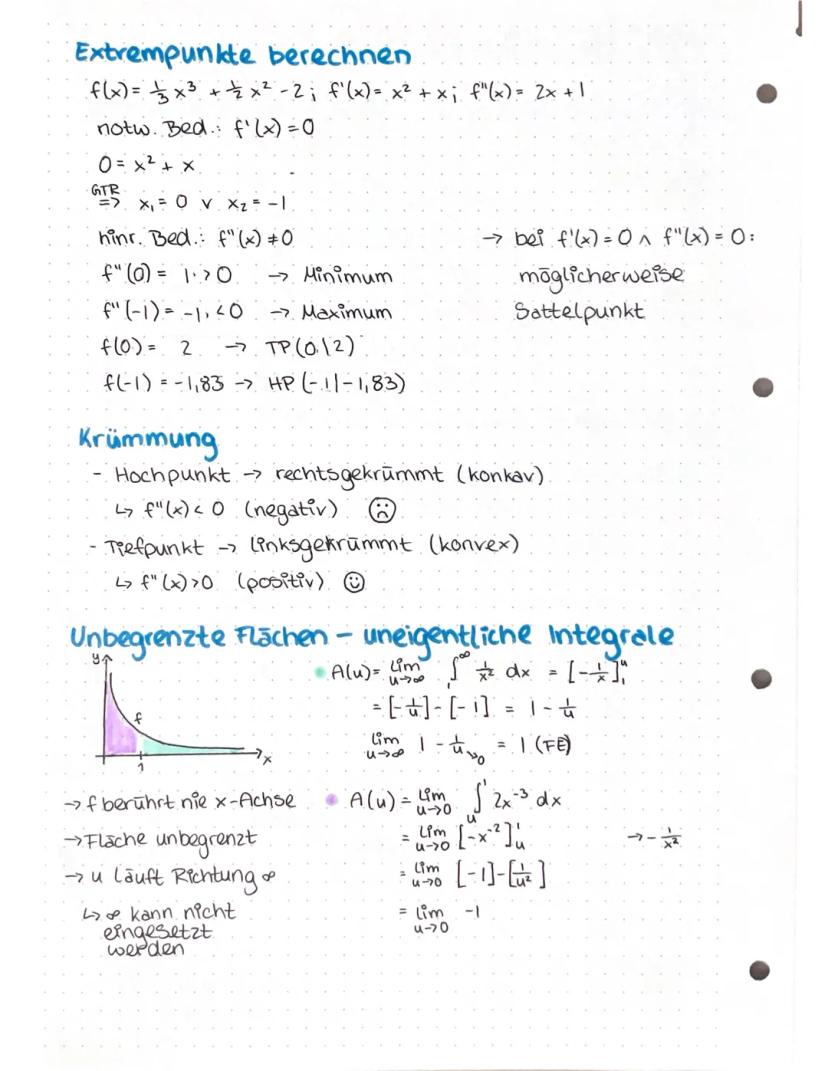 Extrempunkte berechnen
f(x) = 1/3 x³ + 1/2 x² - 2 ; f'(x) = x² + x ; f"(x) = 2x + 1
notw. Bed.: f'(x) = 0
0 = x² + x
GTR
=> x₁ = 0 ∨ x₂ = -1
hinr. Bed.: f"(x) ≠ 0
→ bei f'(x) = 0 ∧ f"(x) = 0:
f"(0) = 1 > 0 → Minimum
möglicherweise
f"(-1) = -1 < 0 → Maximum
Sattelpunkt
f(0) = 2 → TP (0|2)
f(-1) = -1,83 → HP (-1|-1,83)
Krümmung
- Hochpunkt → rechtsgekrümmt (konkav)
↳ f"(x) < 0 (negativ) ☹
- Tiefpunkt → linksgekrümmt (konvex)
↳ f"(x) > 0 (positiv) ☺
Unbegrenzte Flächen - uneigentliche Integrale
y
f
1
x
A(u) = lim u→∞ ∫₁^∞ 1/x² dx = [-1/x]₁ᵘ
= [-1/u] - [-1] = 1 - 1/u
lim u→∞ 1 - 1/u ↘0 = 1 (FE)
→ f berührt nie x-Achse
→ Fläche unbegrenzt
→ u läuft Richtung ∞
↳ ∞ kann nicht
eingesetzt
werden
A(u) = lim u→0 ∫ᵤ¹ 2x⁻³ dx
= lim u→0 [-x⁻²]ᵤ¹ → - 1/x²
= lim u→0 [-1] - [1/u²]
= lim u→0 -1